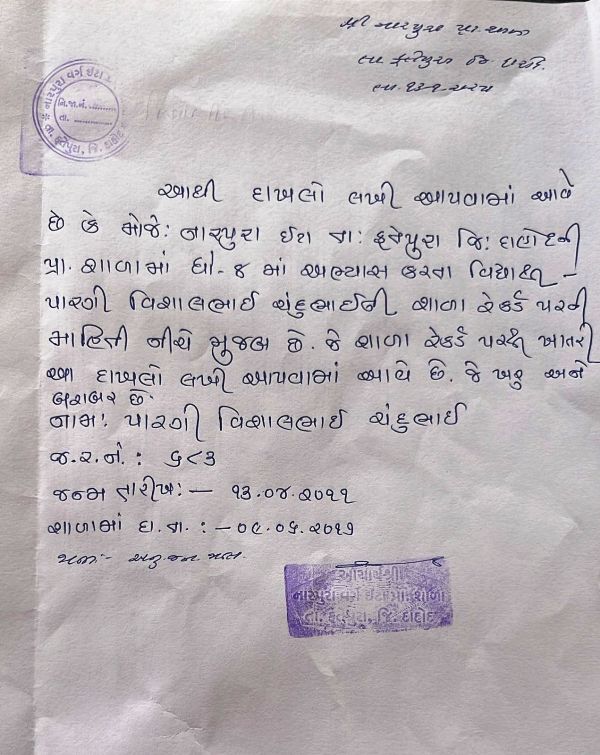 શ્રી નારપુરા પ્રા. શાળા
તા ફતેપુરા જિ દાહોદ
નારપુરા વર્ગ ઈટા
નિ.જા.નં. ..........
તા. ..........
તા. ફતેપુરા, જિ. દાહોદ
આથી દાખલો લખી આપવામાં આવે
છે કે મોજે: નારપુરા ઈટા તા: ફતેપુરા જિ: દાહોદની
પ્રા. શાળામાં ધો-૪ માં અભ્યાસ કરતા વિદ્યાર્થી -
પારગી વિશાલભાઈ ચંદુભાઈની શાળા રેકર્ડ પરની
માહિતી નીચે મુજબ છે. જે શાળા રેકર્ડ પરથી ખાતરી
આ દાખલો લખી આપવામાં આવે છે. જે ખરુ અને
બરાબર છે.
નામ: પારગી વિશાલભાઈ ચંદુભાઈ
જ.ર.નં. : ૬૮૩
જન્મ તારીખ: - ૧૩.૦૪.૨૦૧૧
શાળામાં દા.તા. : - ૦૯.૦૬.૨૦૧૭
આચાર્યશ્રી
નારપુરા વર્ગ ઈટા પ્રા. શાળા
તા. ફતેપુરા, જિ. દાહોદ